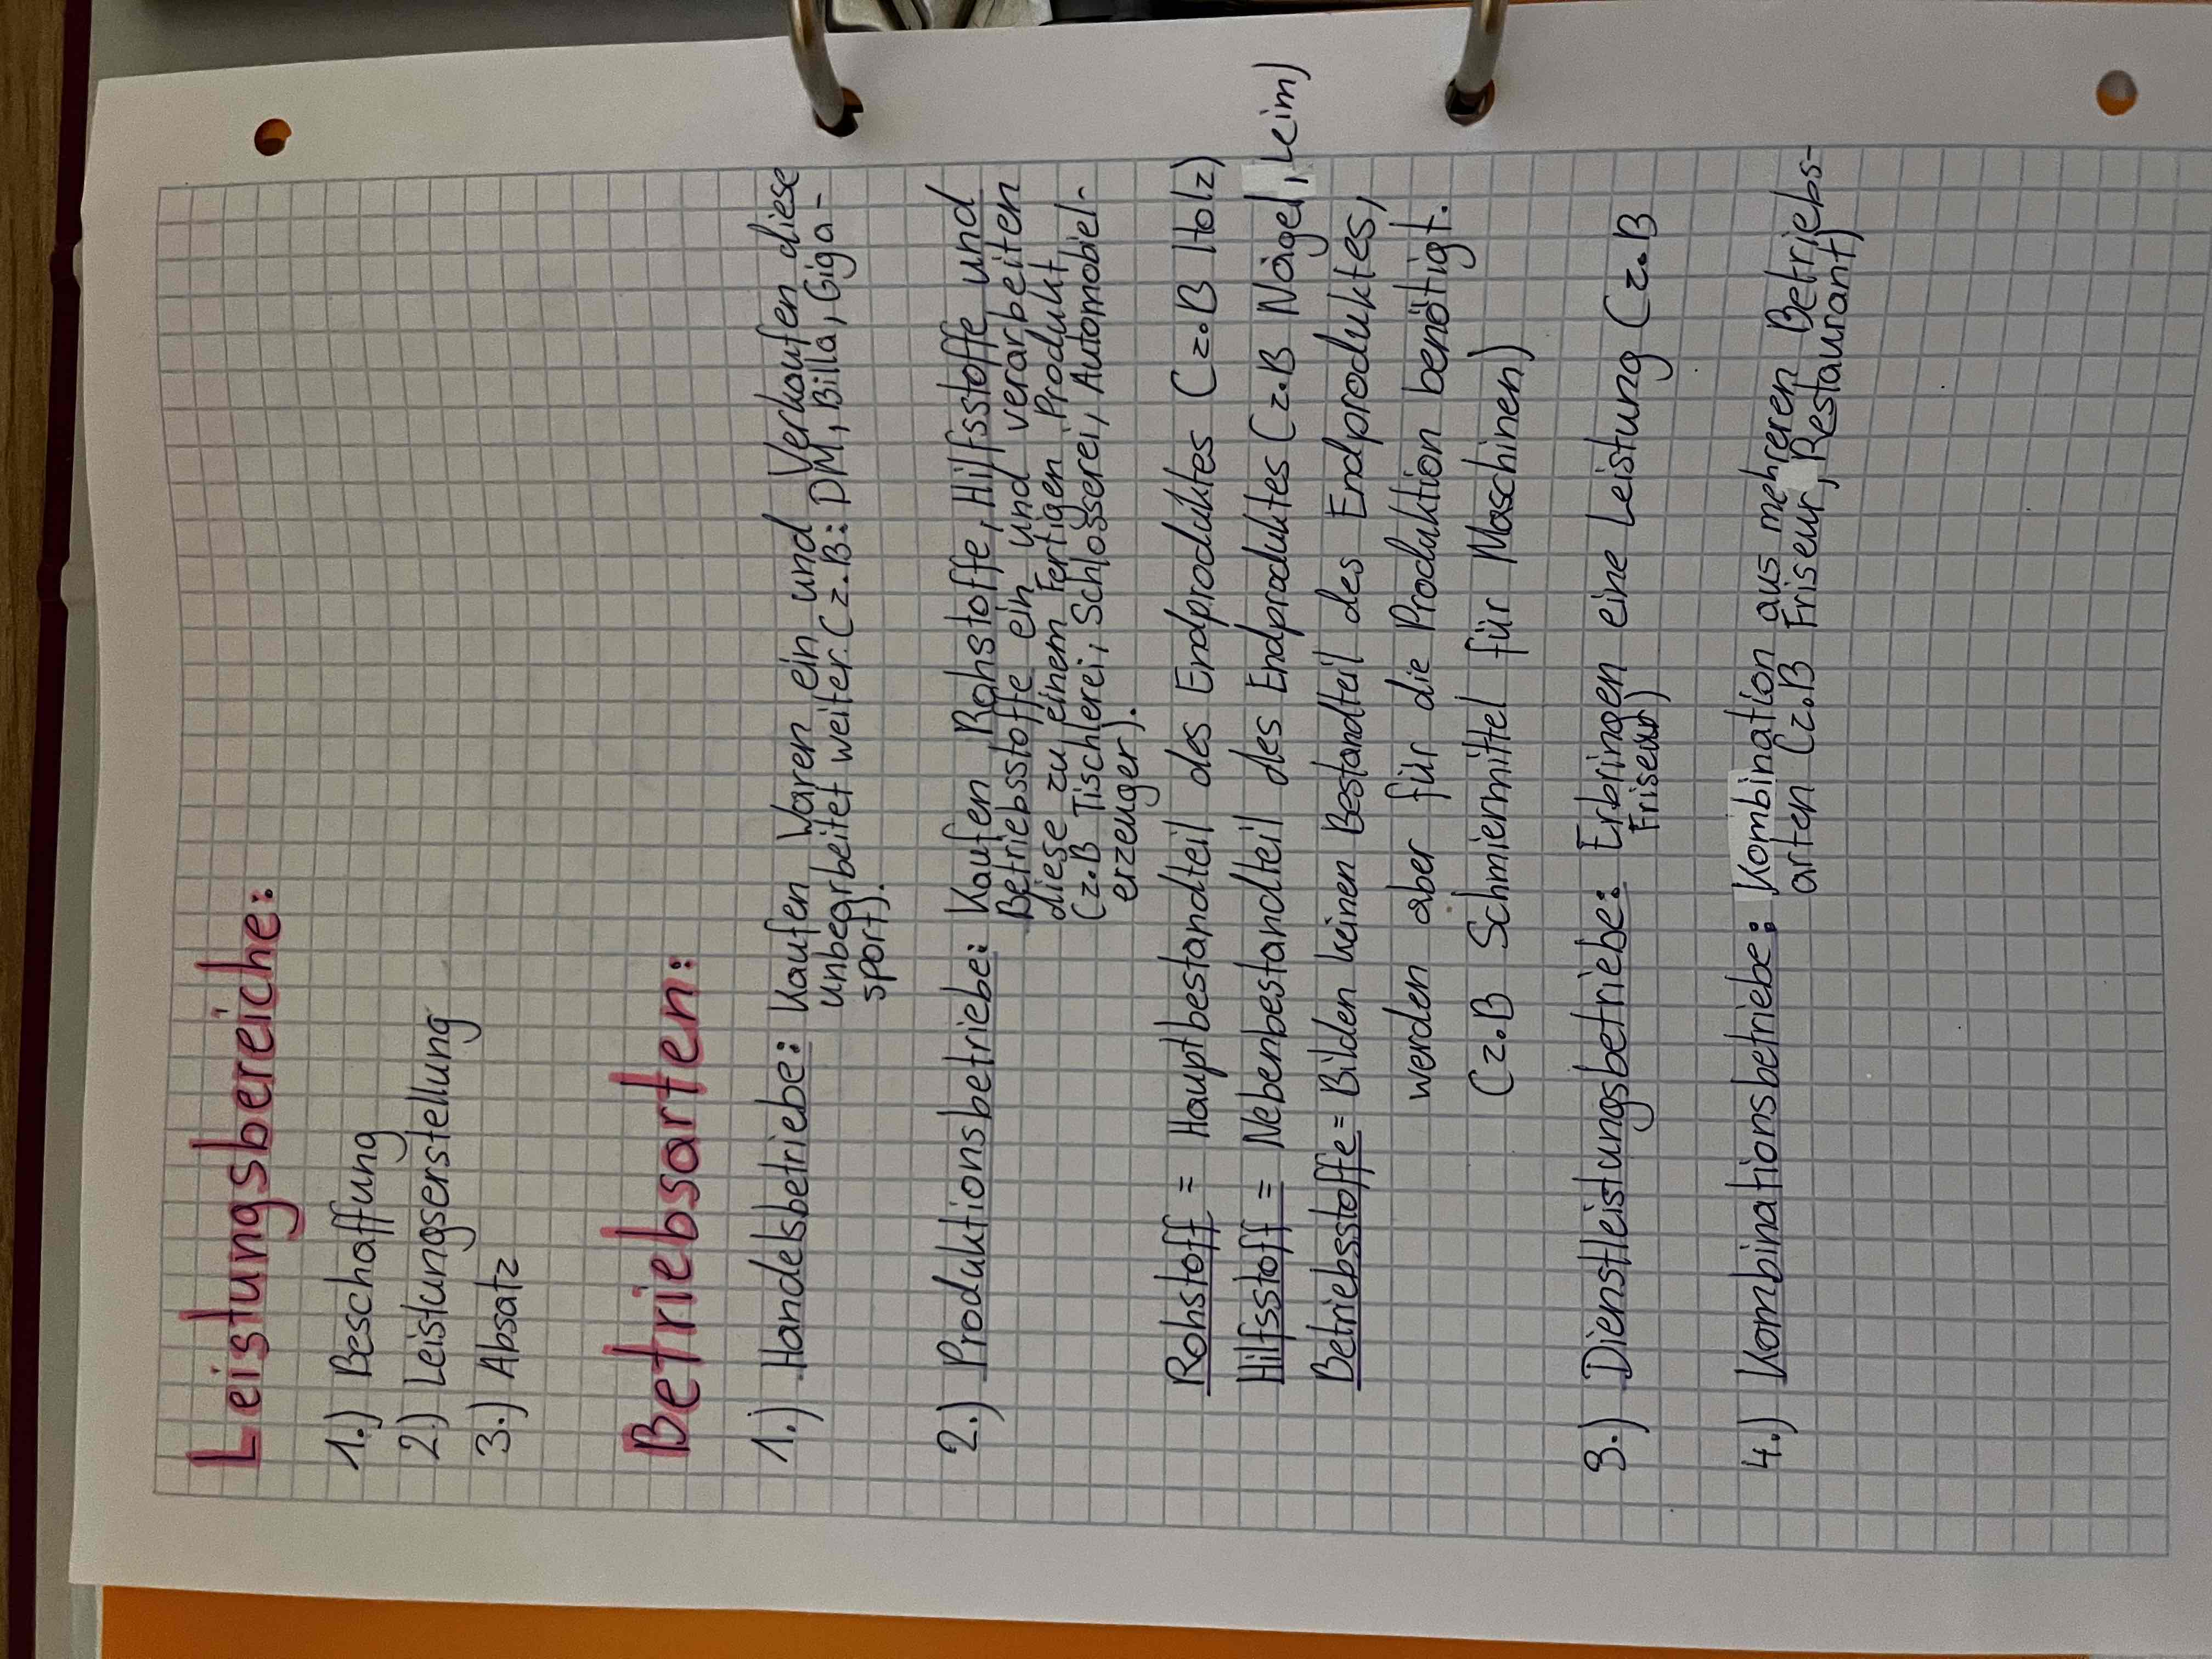 Leistungsbereiche:
1.) Beschaffung
2.) Leistungserstellung
3.) Absatz
Betriebsarten:
1.) Handelsbetriebe: Kaufen Waren ein und Verkaufen diese
unbearbeitet weiter. (z.B: DM, Billa, Giga-
sport).
2.) Produktionsbetriebe: Kaufen Rohstoffe, Hilfsstoffe und
Betriebsstoffe ein und verarbeiten
diese zu einem Fertigen Produkt
(z.B Tischlerei, Schlosserei, Automobiel-
erzeuger).
Rohstoff = Hauptbestandteil des Endproduktes (z.B Holz)
Hilfsstoff = Nebenbestandteil des Endproduktes (z.B Nägel, Leim)
Betriebsstoffe = Bilden keinen Bestandteil des Endproduktes,
werden aber für die Produktion benötigt.
(z.B Schmiermittel für Maschinen)
3.) Dienstleistungsbetriebe: Erbringen eine Leistung (z.B
Friseur)
4.) Kombinationsbetriebe: Kombination aus mehreren Betriebs-
arten (z.B Friseur, Restaurant)